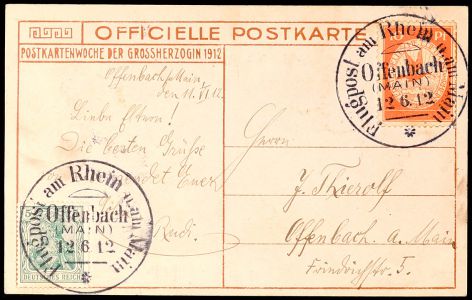 OFFICIELLE POSTKARTE
POSTKARTENWOCHE DER GROSSHERZOGIN 1912
Offenbach/Main,
den 11. VI. 12.
Liebe Eltern!
Die besten Grüße
sendet Euch
Rudi.
Flugpost am Rhein u. am Main
Offenbach
(MAIN)
12 6 12
DEUTSCHES REICH
Flugpost am Rhein u. am Main
Offenbach
(MAIN)
12 6.12
Herrn
J. Thierolf
Offenbach a. Main
Friedrichstr. 5.